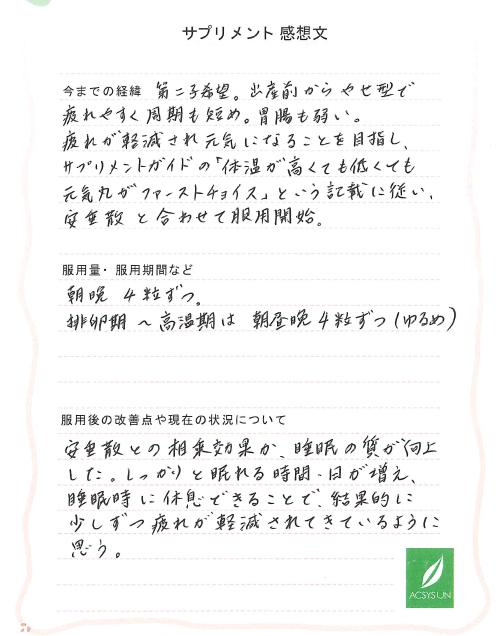 サプリメント 感想文
今までの経緯 第二子希望。出産前からやせ型で
疲れやすく周期も短め。胃腸も弱い。
疲れが軽減され元気になることを目指し、
サプリメントガイドの「体温が高くても低くても
元気丸がファーストチョイス」という記載に従い、
安亜散と合わせて服用開始。
服用量・服用期間など
朝晩 4粒ずつ。
排卵期~高温期は 朝昼晩4粒ずつ(ゆるめ)
服用後の改善点や現在の状況について
安亜散との相乗効果か、睡眠の質が向上
した。しっかりと眠れる時間・日が増え、
睡眠時に休息できることで、結果的に
少しずつ疲れが軽減されてきているように
思う。
ACSYSUN